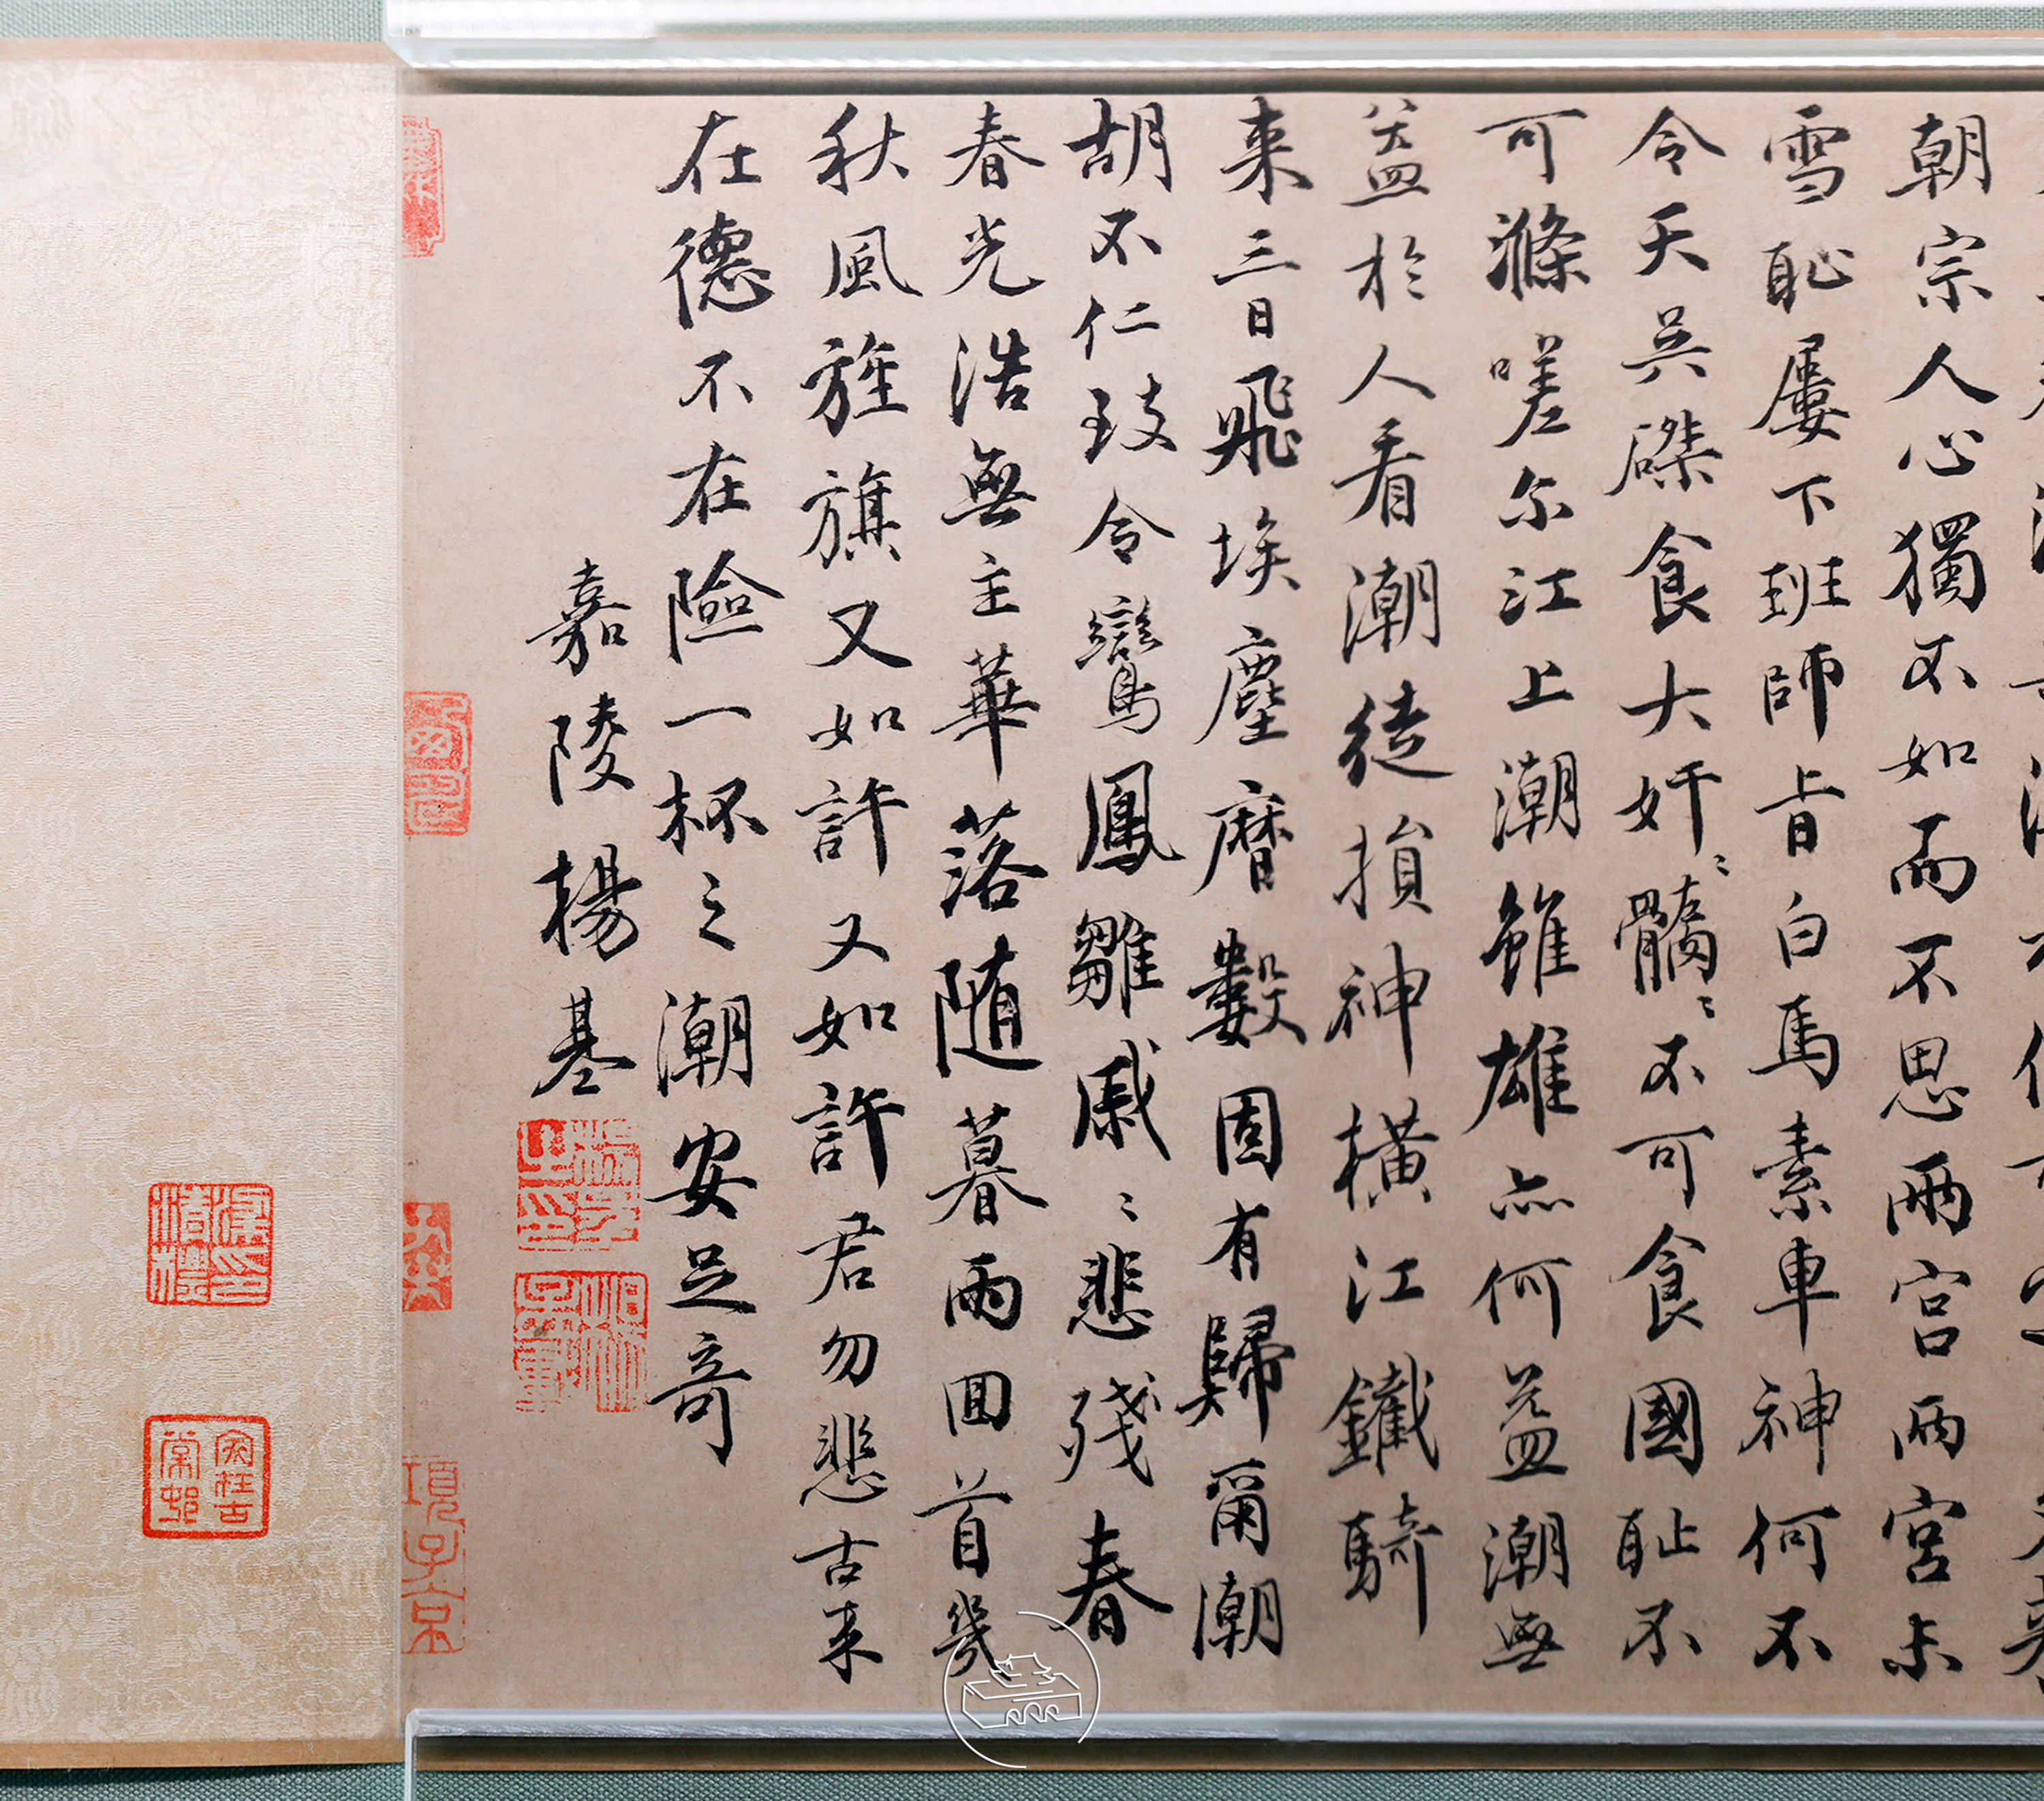 朝宗人心獨不如而不思兩宮兩宮未
雪恥屢下班師旨白馬素車神何不
令天吳磔食大奸〻髒〻不可食國恥不
可滌嗟尔江上潮雖雄亦何益潮無
益於人看潮徒損神橫江鐵騎
来三日飛埃塵曆數固有歸爾潮
胡不仁致令鸞鳳雛戚〻悲殘春
春光浩無主華落随暮雨回首幾
秋風旌旗又如許又如許君勿悲古来
在德不在險一杯之潮安足奇
嘉陵楊基
楊基之印
項子京